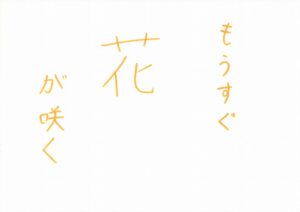 もうすぐ
花
が咲く